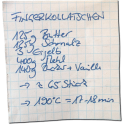 FINGERKOLLATSCHEN
125g Butter
125g Schmalz
3 Eigelb
400g Mehl
140g Zucker + Vanille
→ 2 65 Stück
→ 190°C = 17-18 min